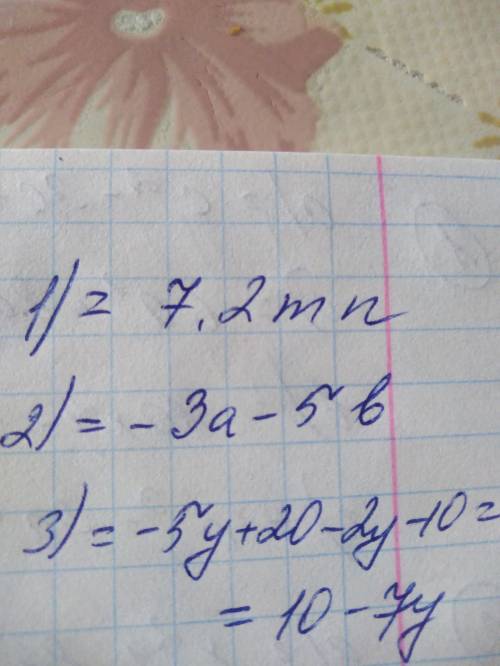 1) = 7,2mn
2) = -3a - 5b
3) = -5y + 20 - 2y - 10 =
= 10 - 7y